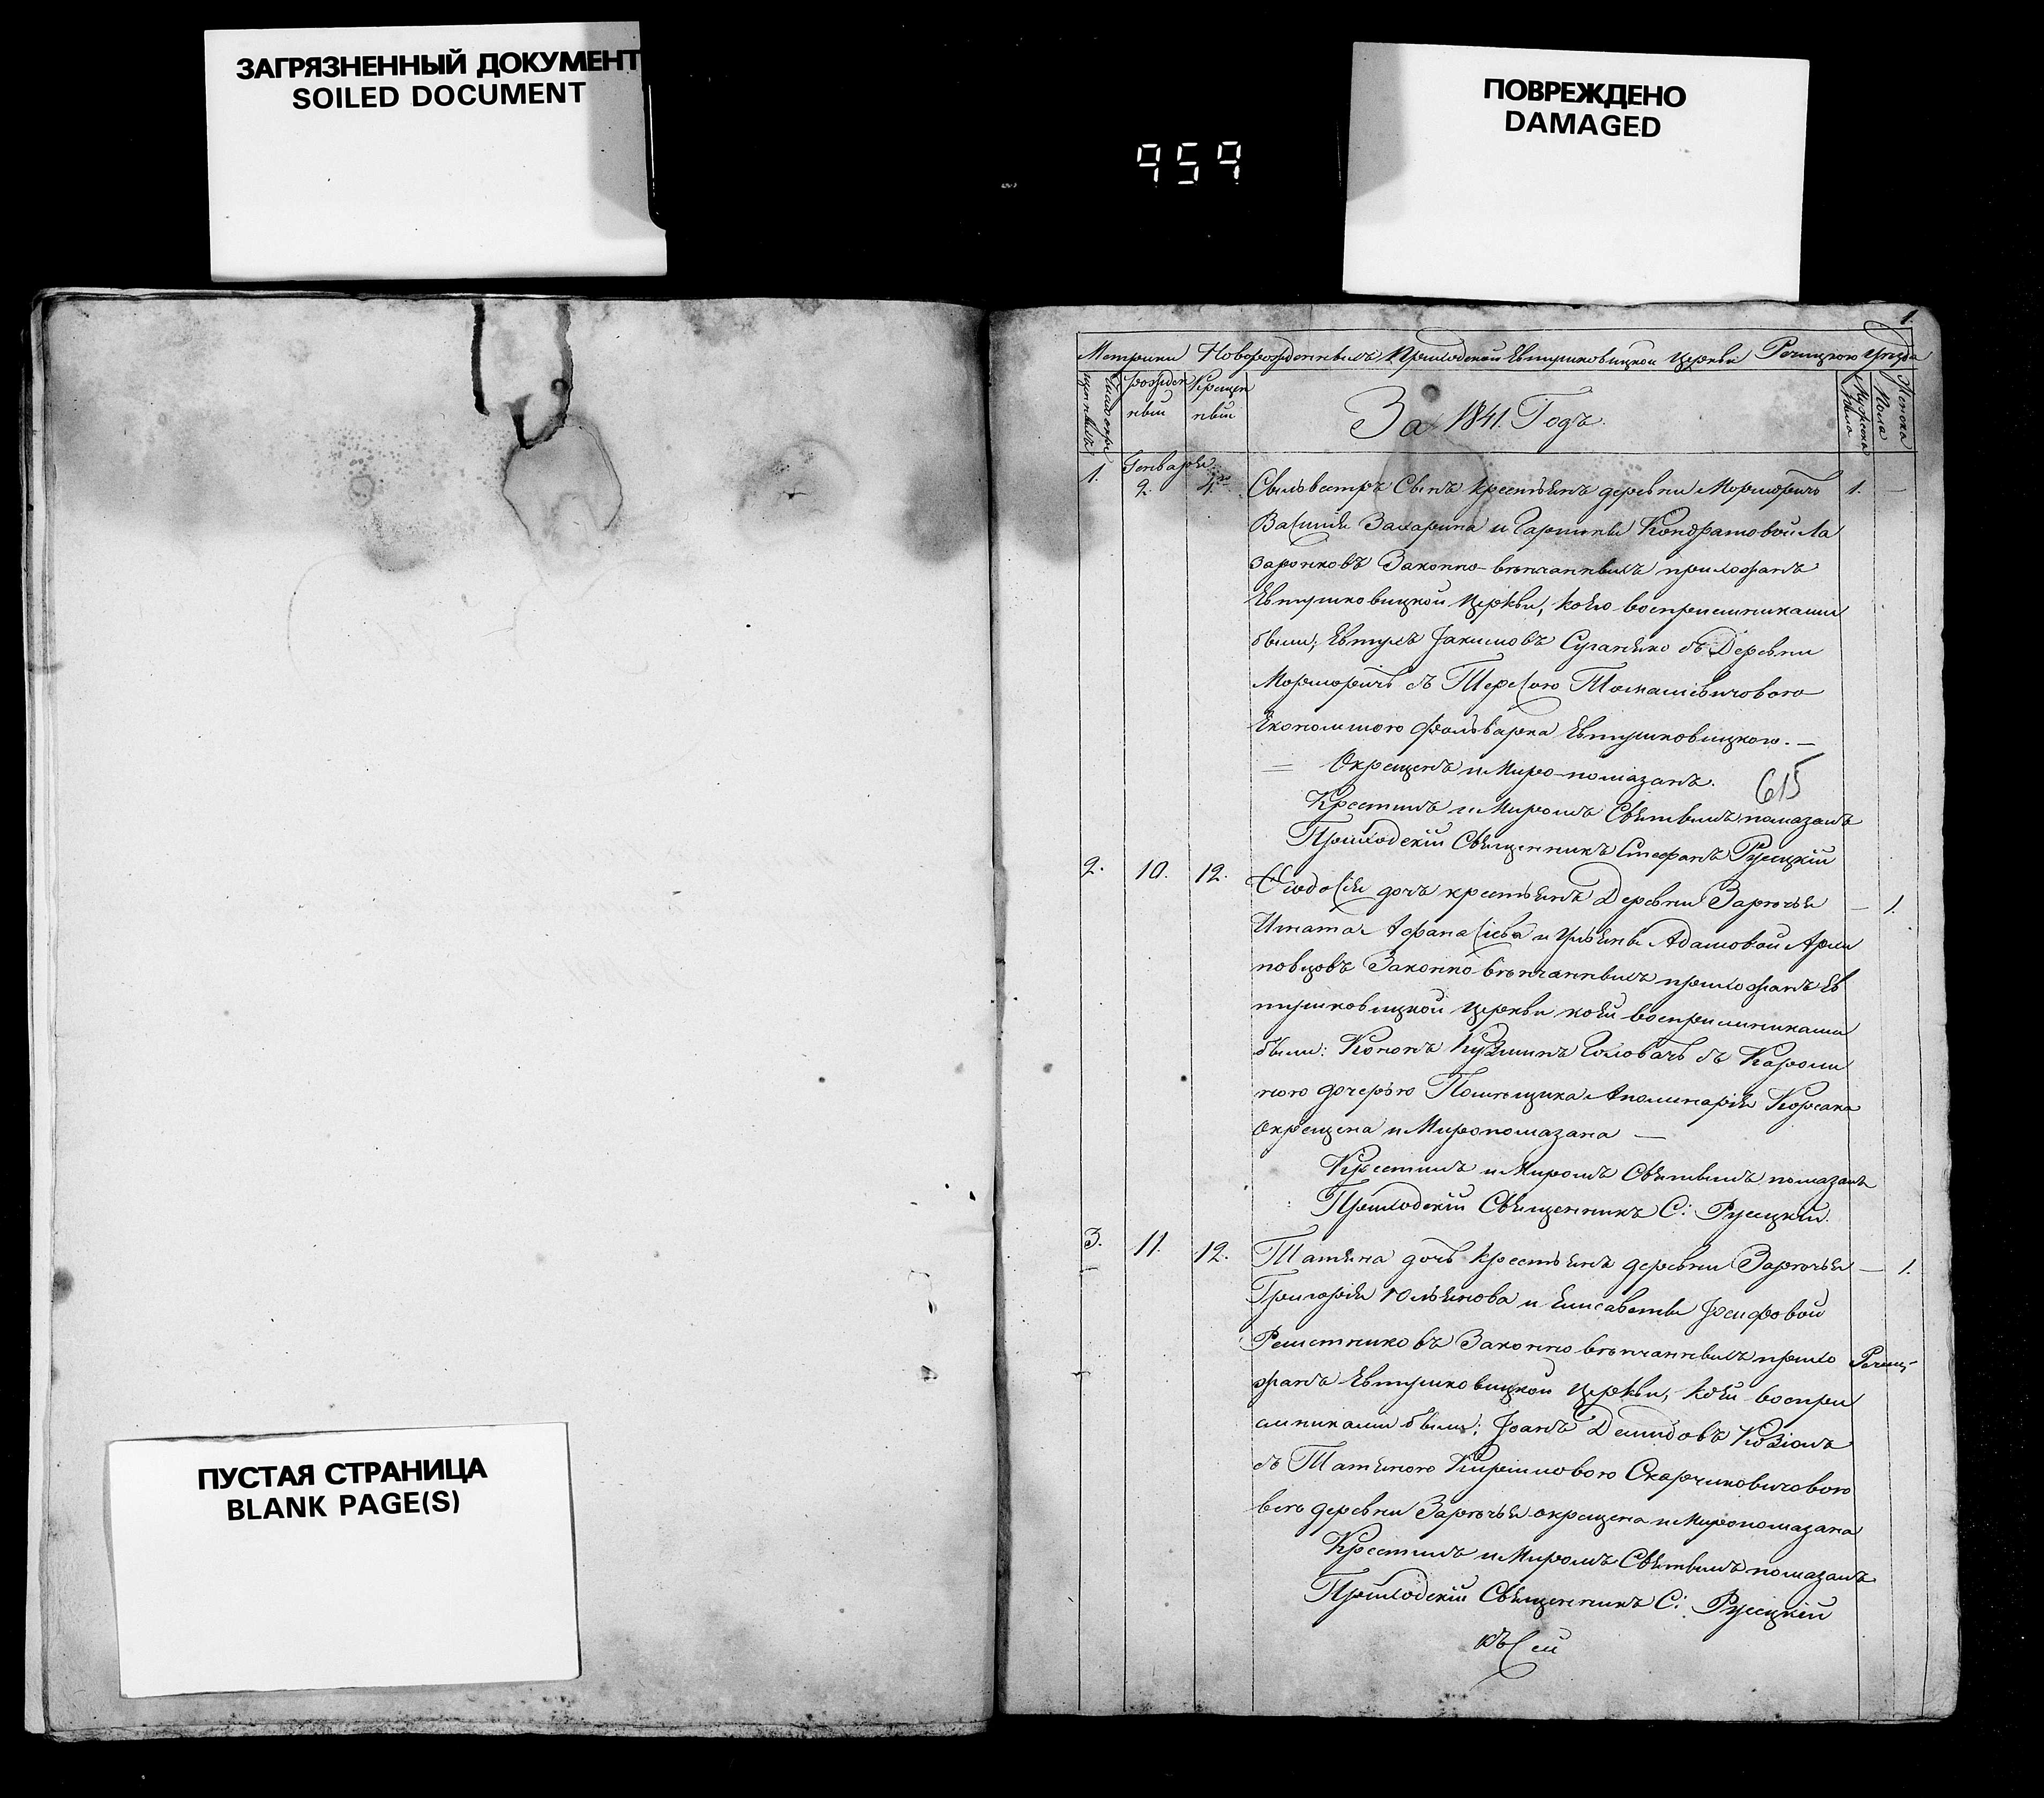 ЗАГРЯЗНЕННЫЙ ДОКУМЕНТ
SOILED DOCUMENT
ПОВРЕЖДЕНО
DAMAGED
959
1.
Метрики Новорожденныхъ Приходской Евтушковицкой Церкви Речицкого Уезда
рожден
ныи
Крещен
ныи
За 1841. Годъ.
Мужеска
Пола
Женска
Генваря
1. 2. 4. Сильвестръ Сынъ крестьянъ деревни Морморичь 1. —
Василія Захарина и Гарпины Кондратовой Ла
заронковъ Законно-вѣнчанныхъ прихожанъ
Евтушковицкой Церкви, коего воспріемниками
были; Евтухъ Іакимовъ съ Деревни
Морморичь съ Терезою Томашевичовою
Економшою фольварка Евтушковицкого. —
Окрещенъ и Миро-помазанъ.
615
Крестилъ и Миромъ Святымъ помазалъ
Приходскій Священникъ Стефанъ Русецкій
2. 10. 12. Феодосія дочъ крестьянъ Деревни Зарѣчья — 1.
Игната Афанасіева и Ульяны Адамовой
Законно вѣнчанныхъ прихожанъ Ев
тушковицкой Церкви коея воспріемниками
были: Кононъ Кузминъ Головачъ съ Кароли
ною дочерью Помѣщика Аполинарія Корсака
окрещена и Миропомазана —
Крестилъ и Миромъ Святымъ помазалъ
Приходскій Священникъ С: Русецкій.
3. 11. 12. Татяна дочъ Крестьянъ деревни Зарѣчья — 1.
Григорія Юльянова и Елисаветы Іосифовой
Решетниковъ Законно вѣнчанныхъ прихо
жанъ Евтушковицкой Церкви, коея воспрі
емниками были; Іоанъ Демидовъ Козіолъ
съ Татяною Кириловою Скарчиковичовою
деревни Зарѣчья окрещена и Миропомазана
Крестилъ и Миромъ Святымъ помазалъ
Приходскій Священникъ С: Русецкій
къ Сей
ПУСТАЯ СТРАНИЦА
BLANK PAGE(S)